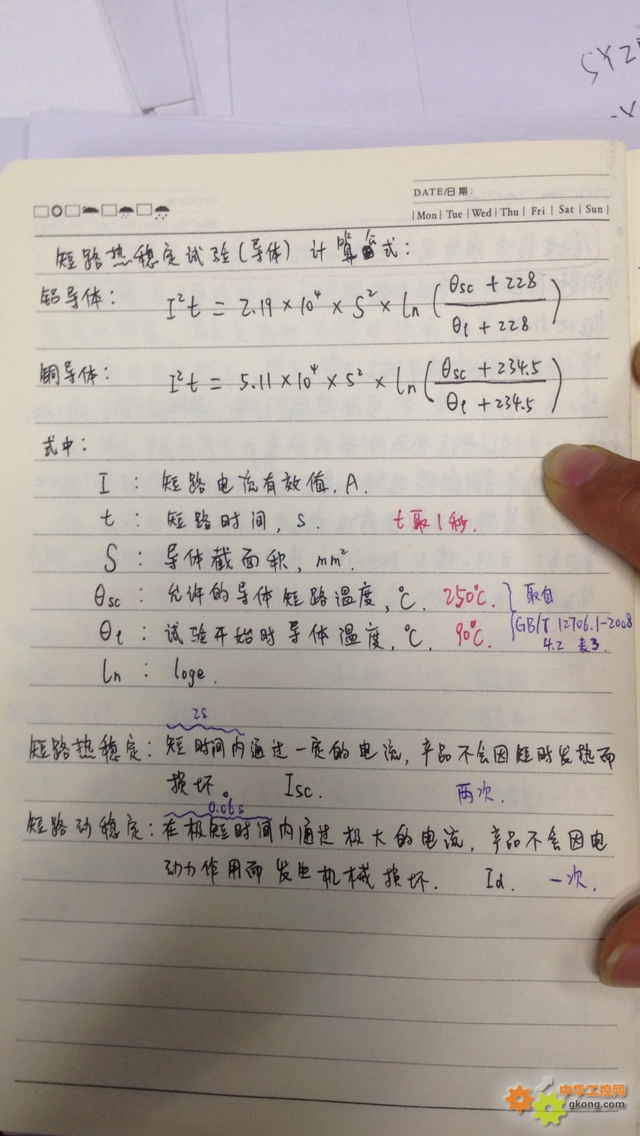 SYZ
DATE/日期:
|Mon| Tue |Wed| Thu | Fri | Sat | Sun|
短路热稳定试验(导体)计算公式:
铝导体: I²t = 2.19×10⁴×S²×ln(θsc+228/θ1+228)
铜导体: I²t = 5.11×10⁴×S²×ln(θsc+234.5/θ1+234.5)
式中:
I : 短路电流有效值, A.
t : 短路时间, s. t取1秒.
S : 导体截面积, mm².
θsc : 允许的导体短路温度, ℃. 250℃. 取自
θ1 : 试验开始时导体温度, ℃. 90℃. GB/T 12706.1-2008
4.2 表3.
ln : loge.
2s
短路热稳定: 短时间内通过一定的电流, 产品不会因短时发热而
损坏。 Isc. 两次.
0.06s
短路动稳定: 在极短时间内通过极大的电流, 产品不会因电
动力作用而发生机械损坏. Id. 一次.
中华工控网
gkong.com